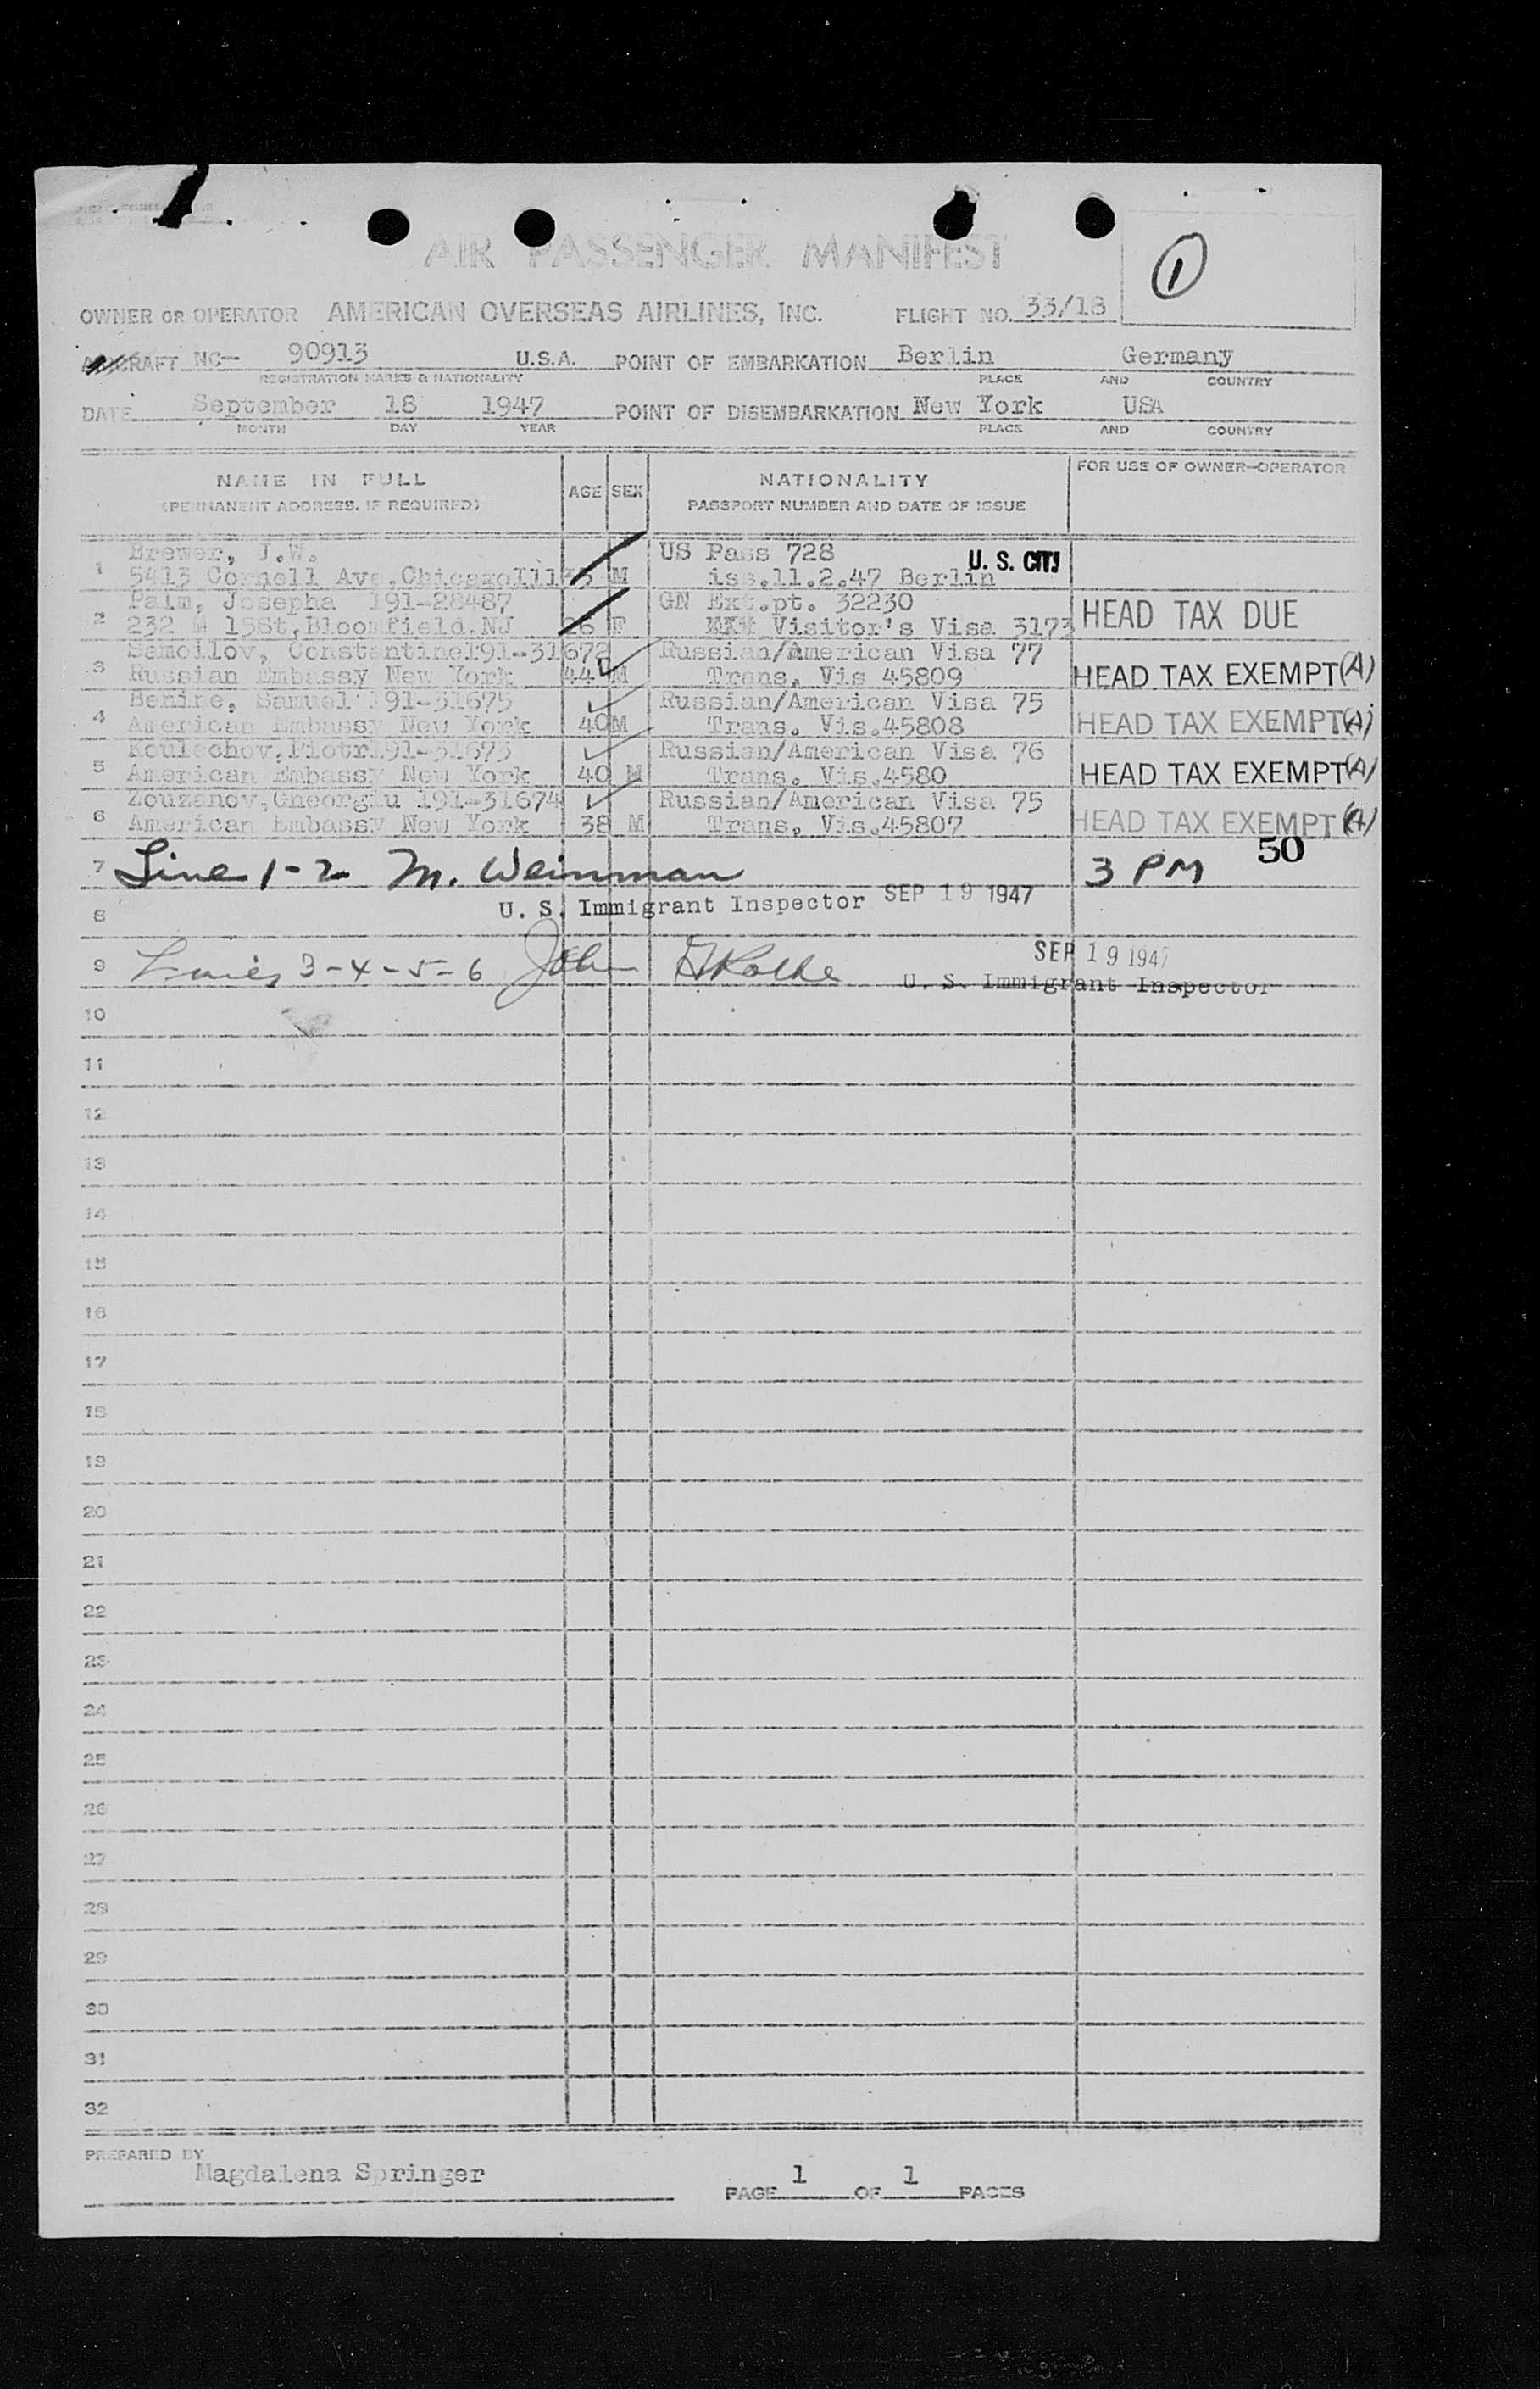 1
AIR PASSENGER MANIFEST
OWNER OR OPERATOR AMERICAN OVERSEAS AIRLINES, INC. FLIGHT NO. 33/18
AIRCRAFT NC- 90913 U.S.A. POINT OF EMBARKATION Berlin Germany
REGISTRATION MARKS & NATIONALITY PLACE AND COUNTRY
DATE September 18 1947 POINT OF DISEMBARKATION New York USA
MONTH DAY YEAR PLACE AND COUNTRY
NAME IN FULL AGE SEX NATIONALITY FOR USE OF OWNER-OPERATOR
(PERMANENT ADDRESS, IF REQUIRED) PASSPORT NUMBER AND DATE OF ISSUE
Brewer, J.W. US Pass 728 U. S. CITJ
1 5413 Cornell Ave, Chicago Ill M iss.11.2.47 Berlin
Palm, Josepha 191-28487 GN Ext.pt. 32230 HEAD TAX DUE
2 232 M 15St, Bloomfield, NJ 26 F Visitor's Visa 3173
Samoilov, Constantine 191-31672 Russian/American Visa 77
3 Russian Embassy New York 44 M Trans. Vis 45809 HEAD TAX EXEMPT (A)
Benine, Samuel 191-31675 Russian/American Visa 75
4 American Embassy New York 40 M Trans. Vis.45808 HEAD TAX EXEMPT (A)
Koulechov, Piotr 191-31673 Russian/American Visa 76
5 American Embassy New York 40 M Trans. Vis.4580 HEAD TAX EXEMPT (A)
Zouzanov, Gheorgiu 191-31674 Russian/American Visa 75
6 American Embassy New York 38 M Trans. Vis.45807 HEAD TAX EXEMPT (A)
50
7 Line 1-2 M. Weinman 3 PM
8 U. S. Immigrant Inspector SEP 19 1947
9 Lines 3-4-5-6 John SEP 19 1947
U. S. Immigrant Inspector
10
11
12
13
14
15
16
17
18
19
20
21
22
23
24
25
26
27
28
29
30
31
32
PREPARED BY
Magdalena Springer
PAGE 1 OF 1 PAGES